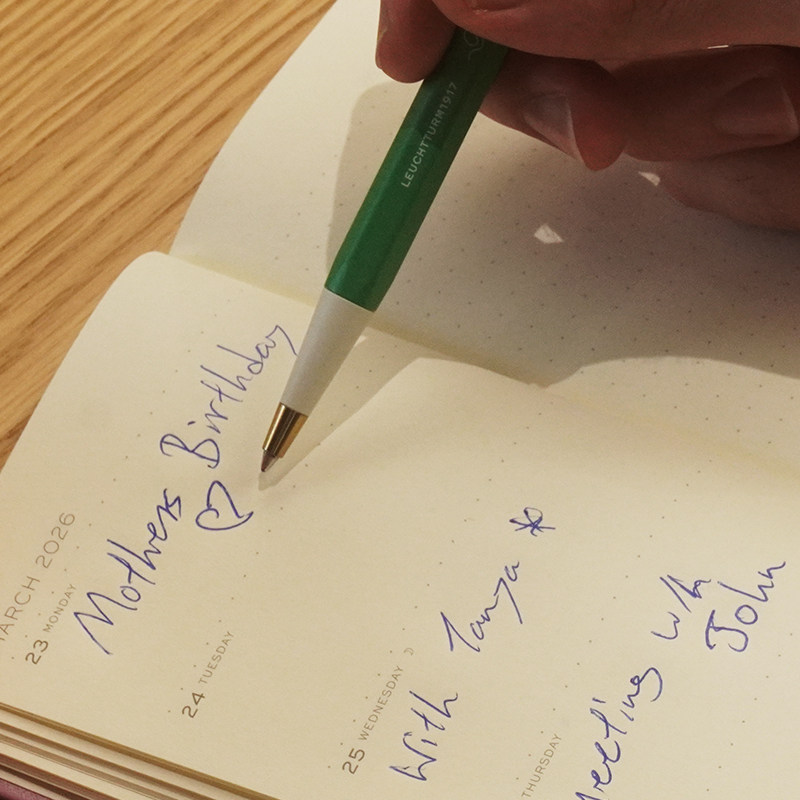 LEUCHTTURM1917
MARCH 2026
23 MONDAY
Mothers Birthday
24 TUESDAY
25 WEDNESDAY
With Tanya
THURSDAY
Meeting with
John